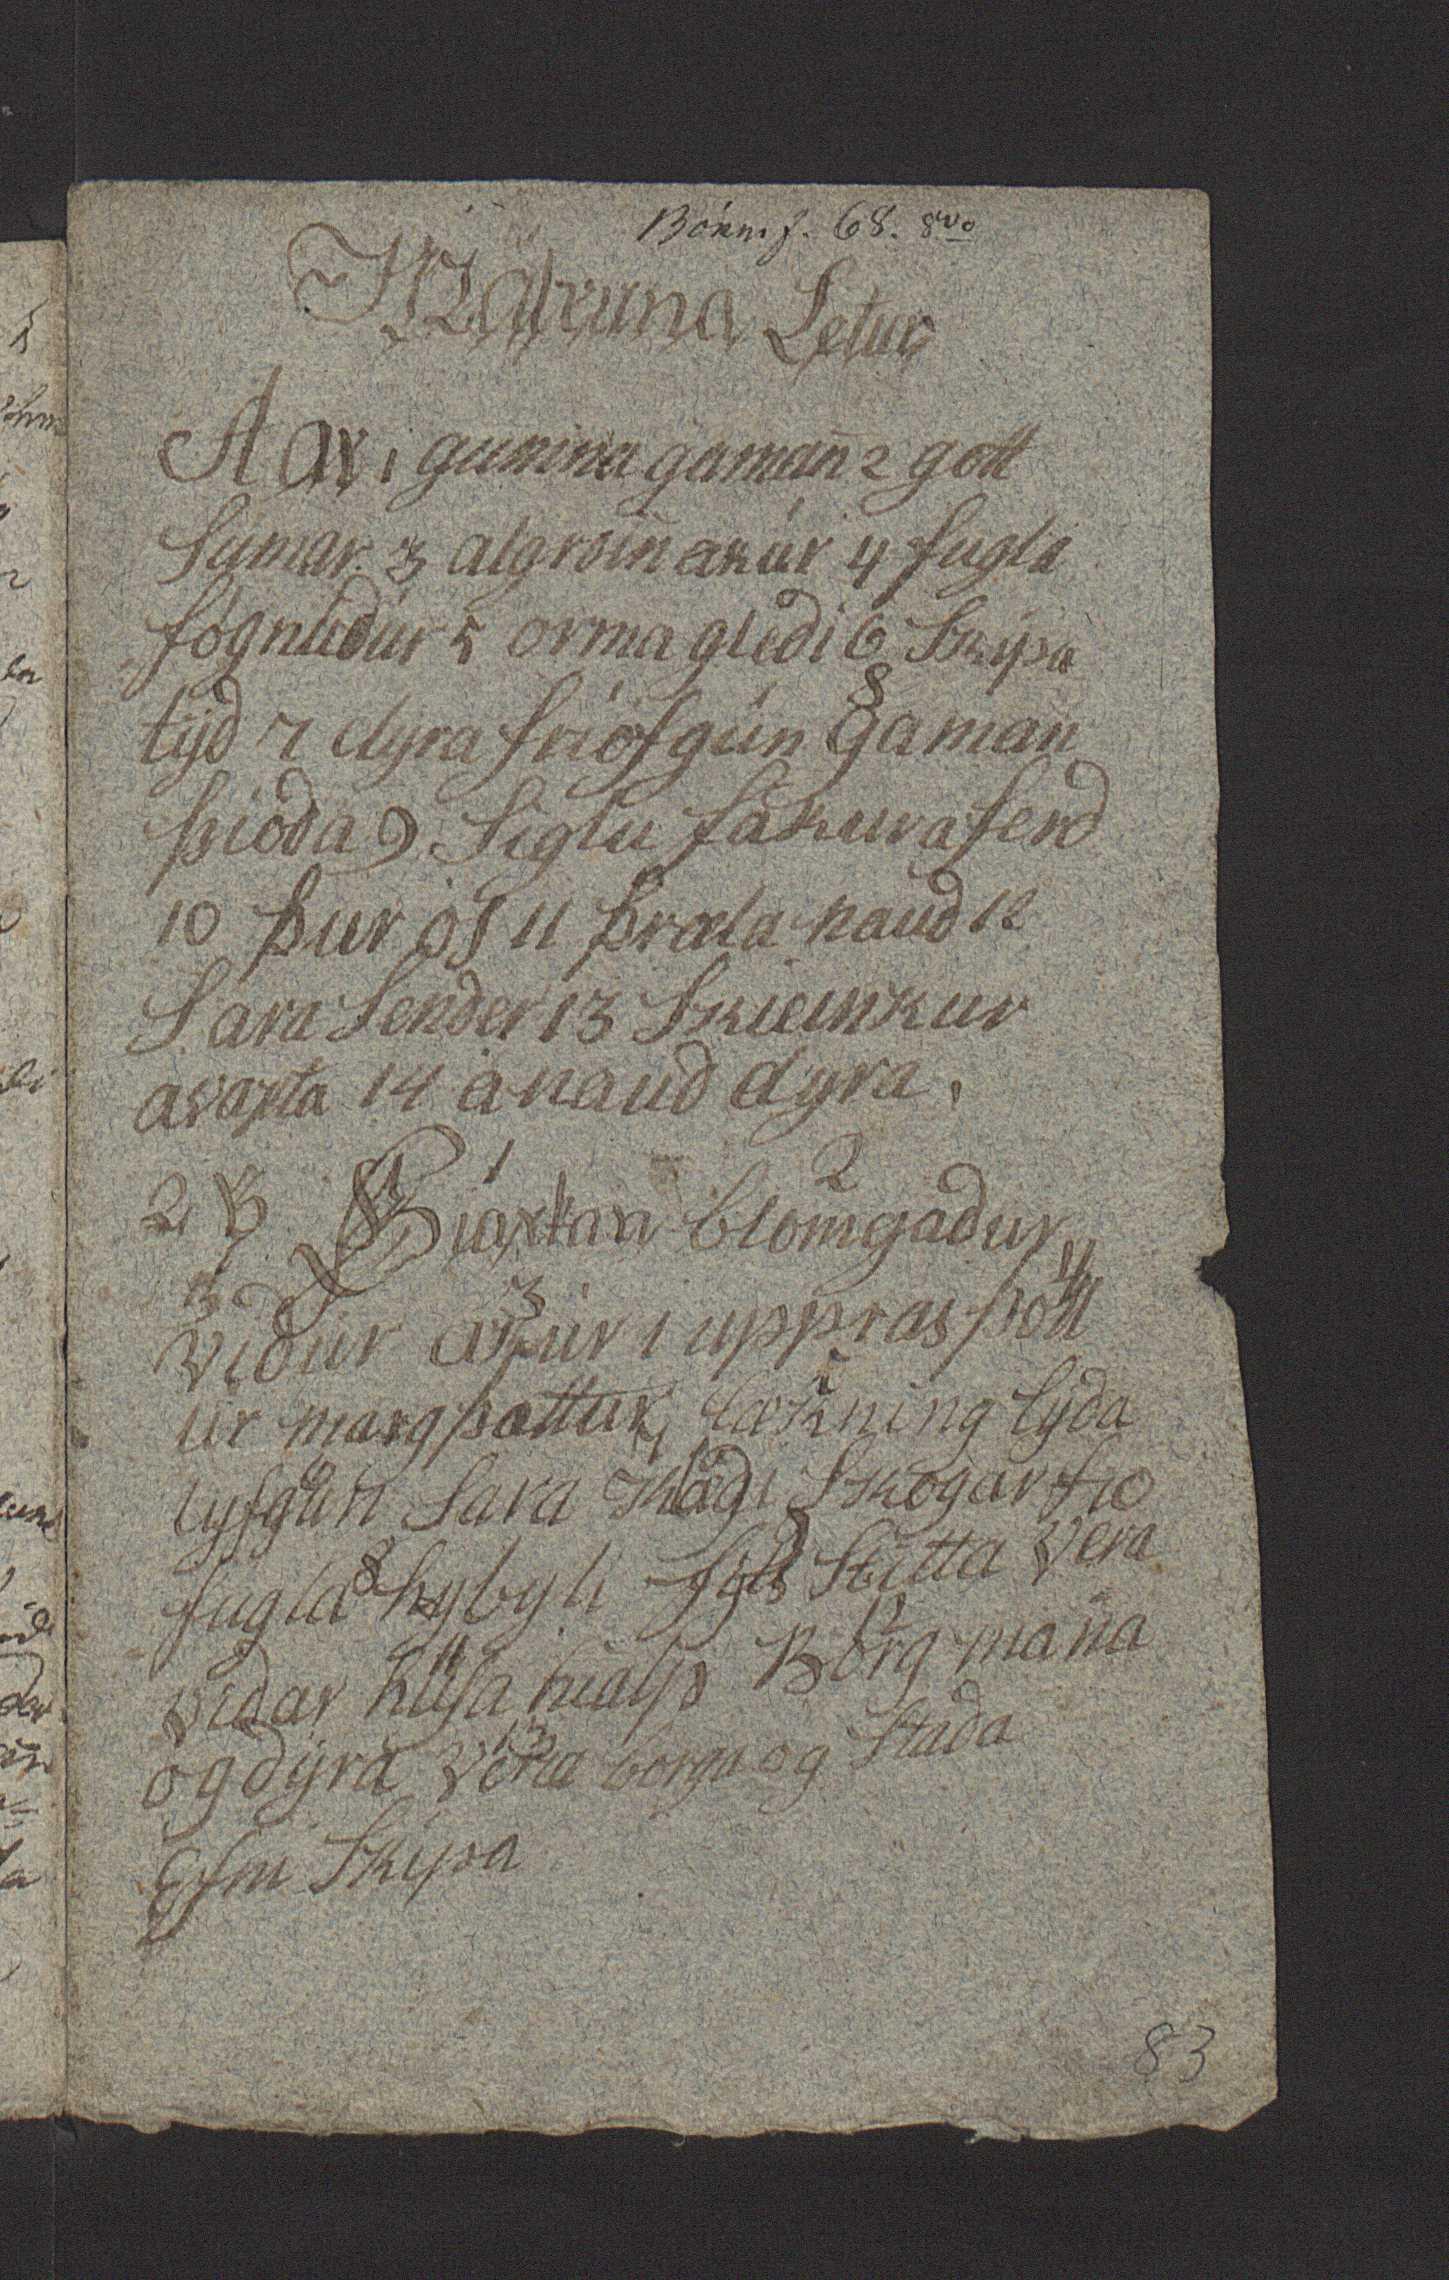 Bókm.f. 68. 8vo
Málruna Letur
A ar 1 gumna gaman 2 gott
Sumar 3 algróin akúr 4 fugla
fögnúdúr 5 orma gledi 6 Skipa
tijd 7 dyra friófgún 8 gaman
þióda 9 Siglu fákura ferd
10 þur ós 11 þræla naud 12
Sara Sender 13 Skieinkur
avaxta 14 ánaud dyra.
2 B 1 Biarkan 2 blomgadur
vidur 3 akúr i uppras 4 þótt
úr margþættur 5 lækning lyda
lyfgún Sara Skógar
fugla 8 hybyli Stutta Vera
vidar 11 húsa hialp 12 Borg mana
og dýra 13 Vera borga og Stada
Efni Skipa
83